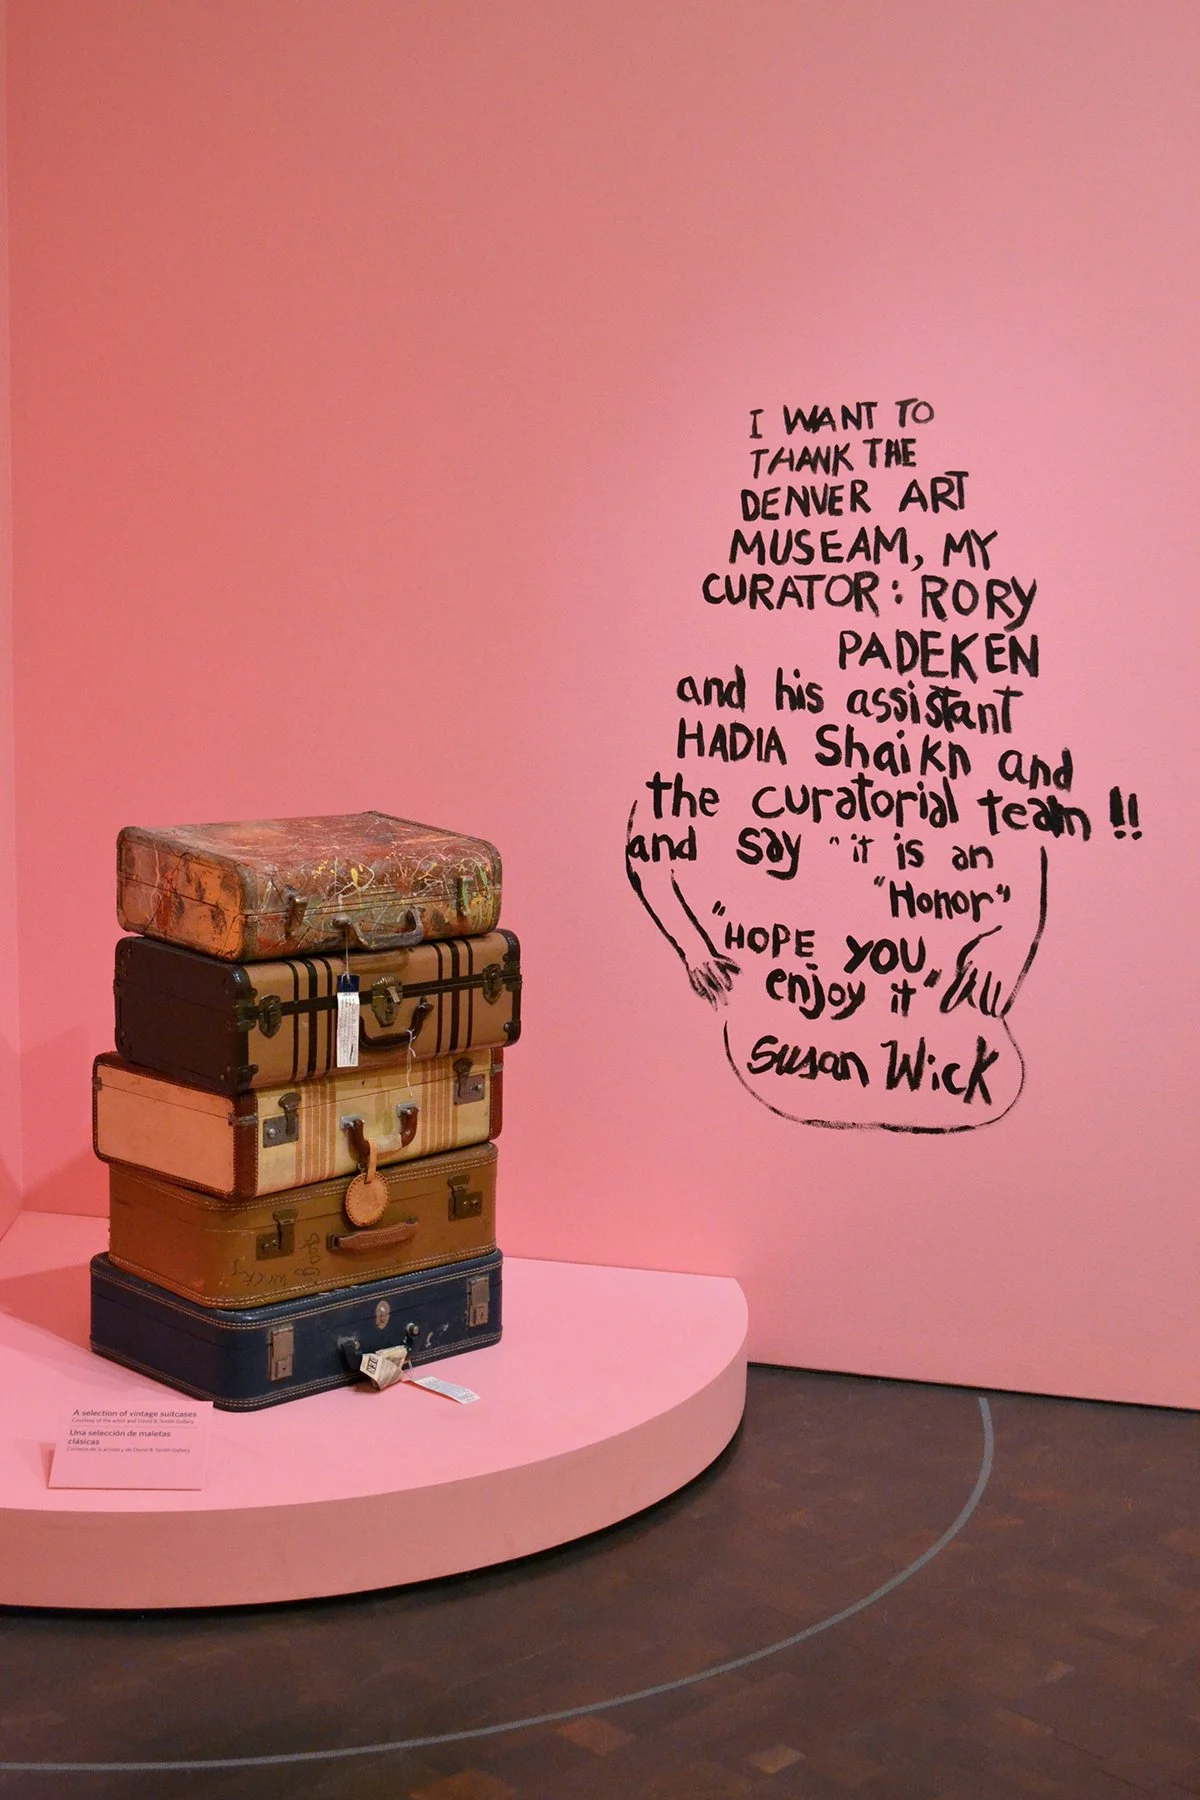 I WANT TO
THANK THE
DENVER ART
MUSEAM, MY
CURATOR: RORY
PADEKEN
and his assistant
HADIA Shaikh and
the curatorial team !!
and say "it is an
"Honor"
"HOPE YOU
enjoy it"
Susan Wick
A selection of vintage suitcases
Courtesy of the artist and David B. Smith Gallery
Una selección de maletas
clásicas
Cortesía de la artista y de David B. Smith Gallery